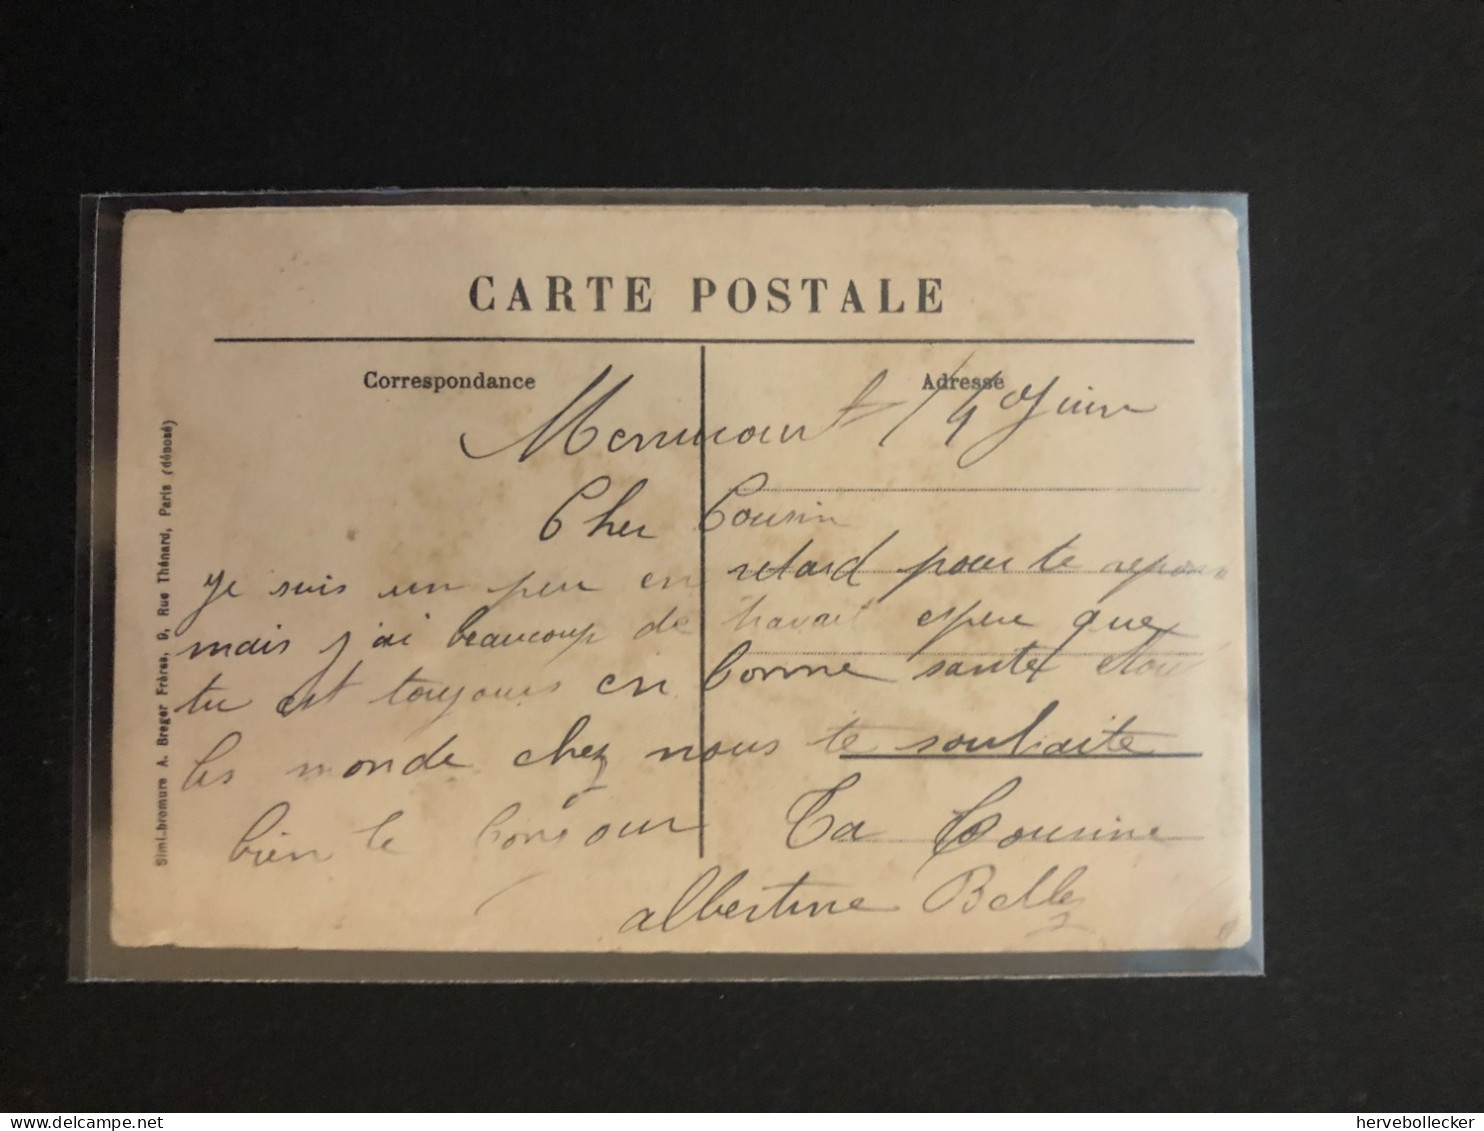 CARTE POSTALE
Correspondance
Adresse
14 Juin
Cher Cousin
Je suis un peu en retard pour te
mais j'ai beaucoup de travail espere que
tu est toujours en bonne sante
les monde chez nous te souhaite
bien le bonjour Ta Cousine
albertine
Simi-bromure A. Breger Frères, 9, Rue Thénard, Paris (déposé)
hervebollecker